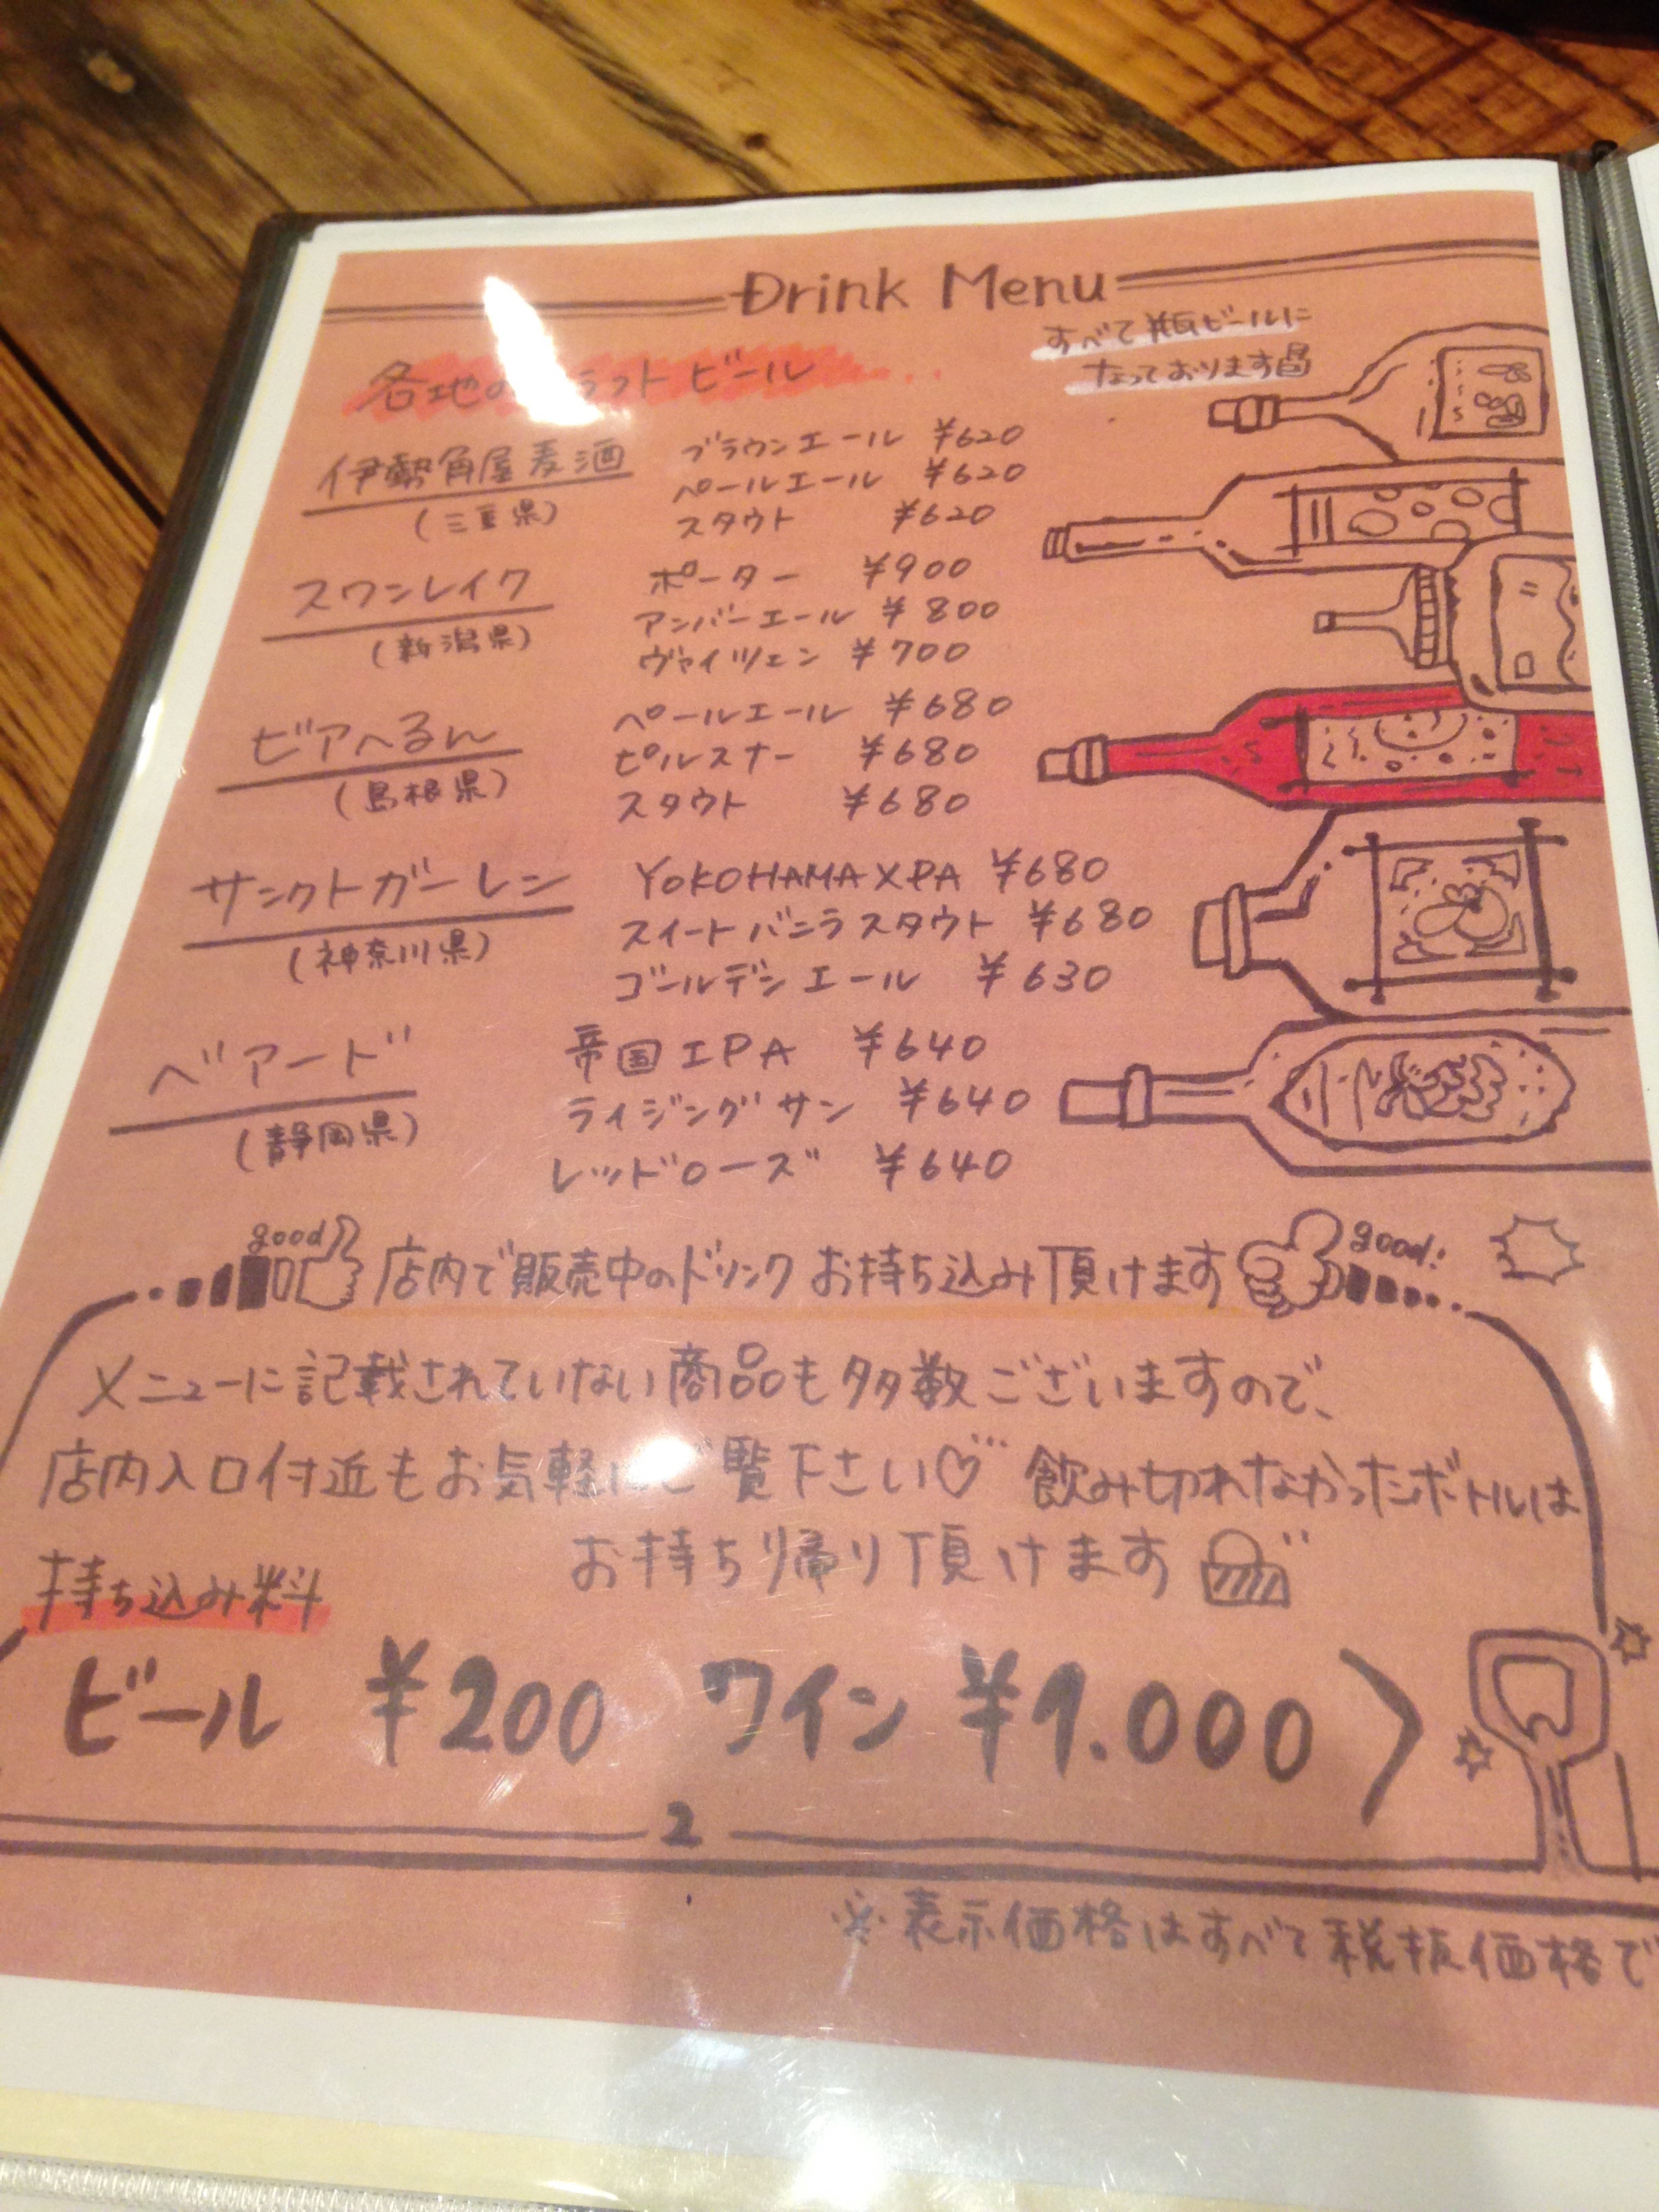 Drink Menu
すべて瓶ビールに
なっております
各地の ラフトビール...
伊勢角屋麦酒
(三重県)
ブラウンエール ¥620
ペールエール ¥620
スタウト ¥620
スワンレイク
(新潟県)
ポーター ¥900
アンバーエール ¥800
ヴァイツェン ¥700
ビアへるん
(島根県)
ペールエール ¥680
ピルスナー ¥680
スタウト ¥680
サンクトガーレン
(神奈川県)
YOKOHAMA XPA ¥680
スイートバニラスタウト ¥680
ゴールデンエール ¥630
ベアード
(静岡県)
帝国IPA ¥640
ライジングサン ¥640
レッドローズ ¥640
good 店内で販売中のドリンクお持ち込み頂けます good!
メニューに記載されていない商品も多数ございますので、
店内入口付近もお気軽にご覧下さい♡ 飲み切れなかったボトルは
お持ち帰り頂けます
持ち込み料
ビール ¥200 ワイン ¥1.000
2
※表示価格はすべて税抜価格で